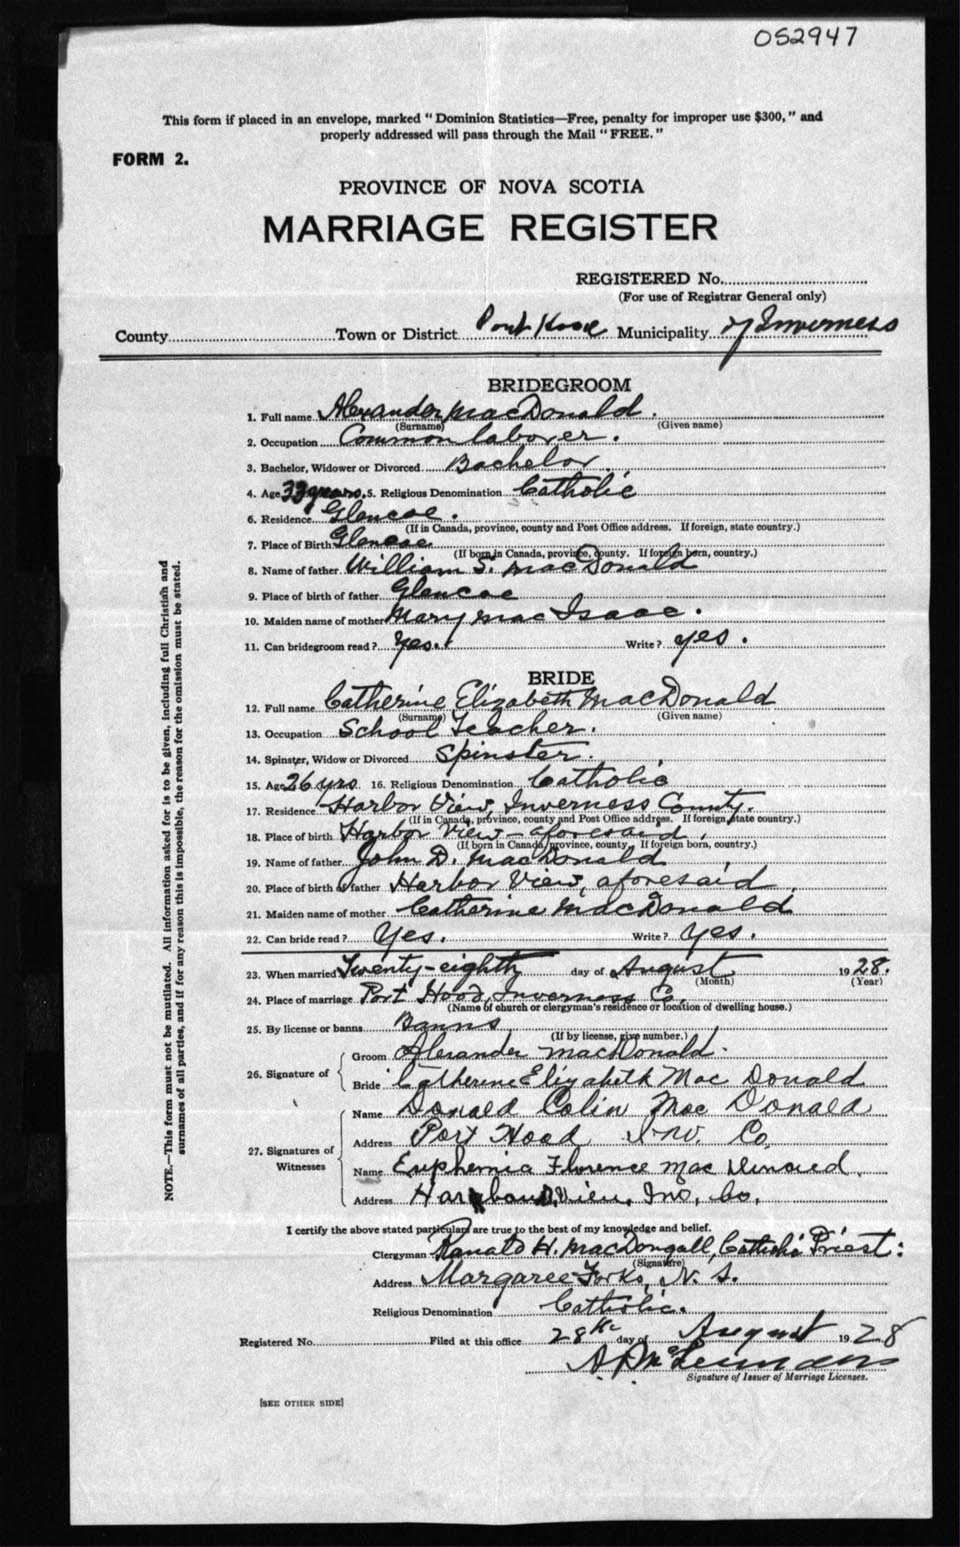 052947
This form if placed in an envelope, marked "Dominion Statistics—Free, penalty for improper use $300," and
properly addressed will pass through the Mail "FREE."
FORM 2.
PROVINCE OF NOVA SCOTIA
MARRIAGE REGISTER
REGISTERED No.
(For use of Registrar General only)
County Town or District Port Hood Municipality of Inverness
BRIDEGROOM
1. Full name Alexander MacDonald.
(Surname) (Given name)
2. Occupation Common laborer.
3. Bachelor, Widower or Divorced Bachelor
4. Age 33 years. 5. Religious Denomination Catholic
6. Residence Glencoe.
(If in Canada, province, county and Post Office address. If foreign, state country.)
7. Place of Birth Glencoe
(If born in Canada, province, county. If foreign born, country.)
8. Name of father William S. MacDonald
9. Place of birth of father Glencoe
10. Maiden name of mother Mary MacIsaac.
11. Can bridegroom read? Yes. Write? yes.
BRIDE
12. Full name Catherine Elizabeth MacDonald
(Surname) (Given name)
13. Occupation School Teacher.
14. Spinster, Widow or Divorced Spinster.
15. Age 26 yrs. 16. Religious Denomination Catholic
17. Residence Harbor View, Inverness County.
(If in Canada, province, county and Post Office address. If foreign, state country.)
18. Place of birth Harbor View - aforesaid.
(If born in Canada, province, county. If foreign born, country.)
19. Name of father John D. MacDonald
20. Place of birth of father Harbor View, aforesaid
21. Maiden name of mother Catherine MacDonald
22. Can bride read? Yes. Write? Yes.
23. When married Twenty-eighth day of August 1928.
(Month) (Year)
24. Place of marriage Port Hood, Inverness Co.
(Name of church or clergyman's residence or location of dwelling house.)
25. By license or banns Banns
(If by license, give number.)
26. Signature of Groom Alexander MacDonald.
Bride Catherine Elizabeth Mac Donald
27. Signatures of Witnesses
Name Donald Colin Mac Donald
Address Port Hood Inv. Co.
Name Euphemia Florence Mac
Address View, Inv, Co.
I certify the above stated particulars are true to the best of my knowledge and belief.
Clergyman Ranald H. MacDougall, Catholic Priest:
(Signature)
Address Margaree Forks, N. S.
Religious Denomination Catholic.
Registered No. Filed at this office 28th day of August 1928
Signature of Issuer of Marriage Licenses.
[SEE OTHER SIDE]
NOTE.—This form must not be mutilated. All information asked for is to be given, including full Christian and
surnames of all parties, and if for any reason this is impossible, the reason for the omission must be stated.